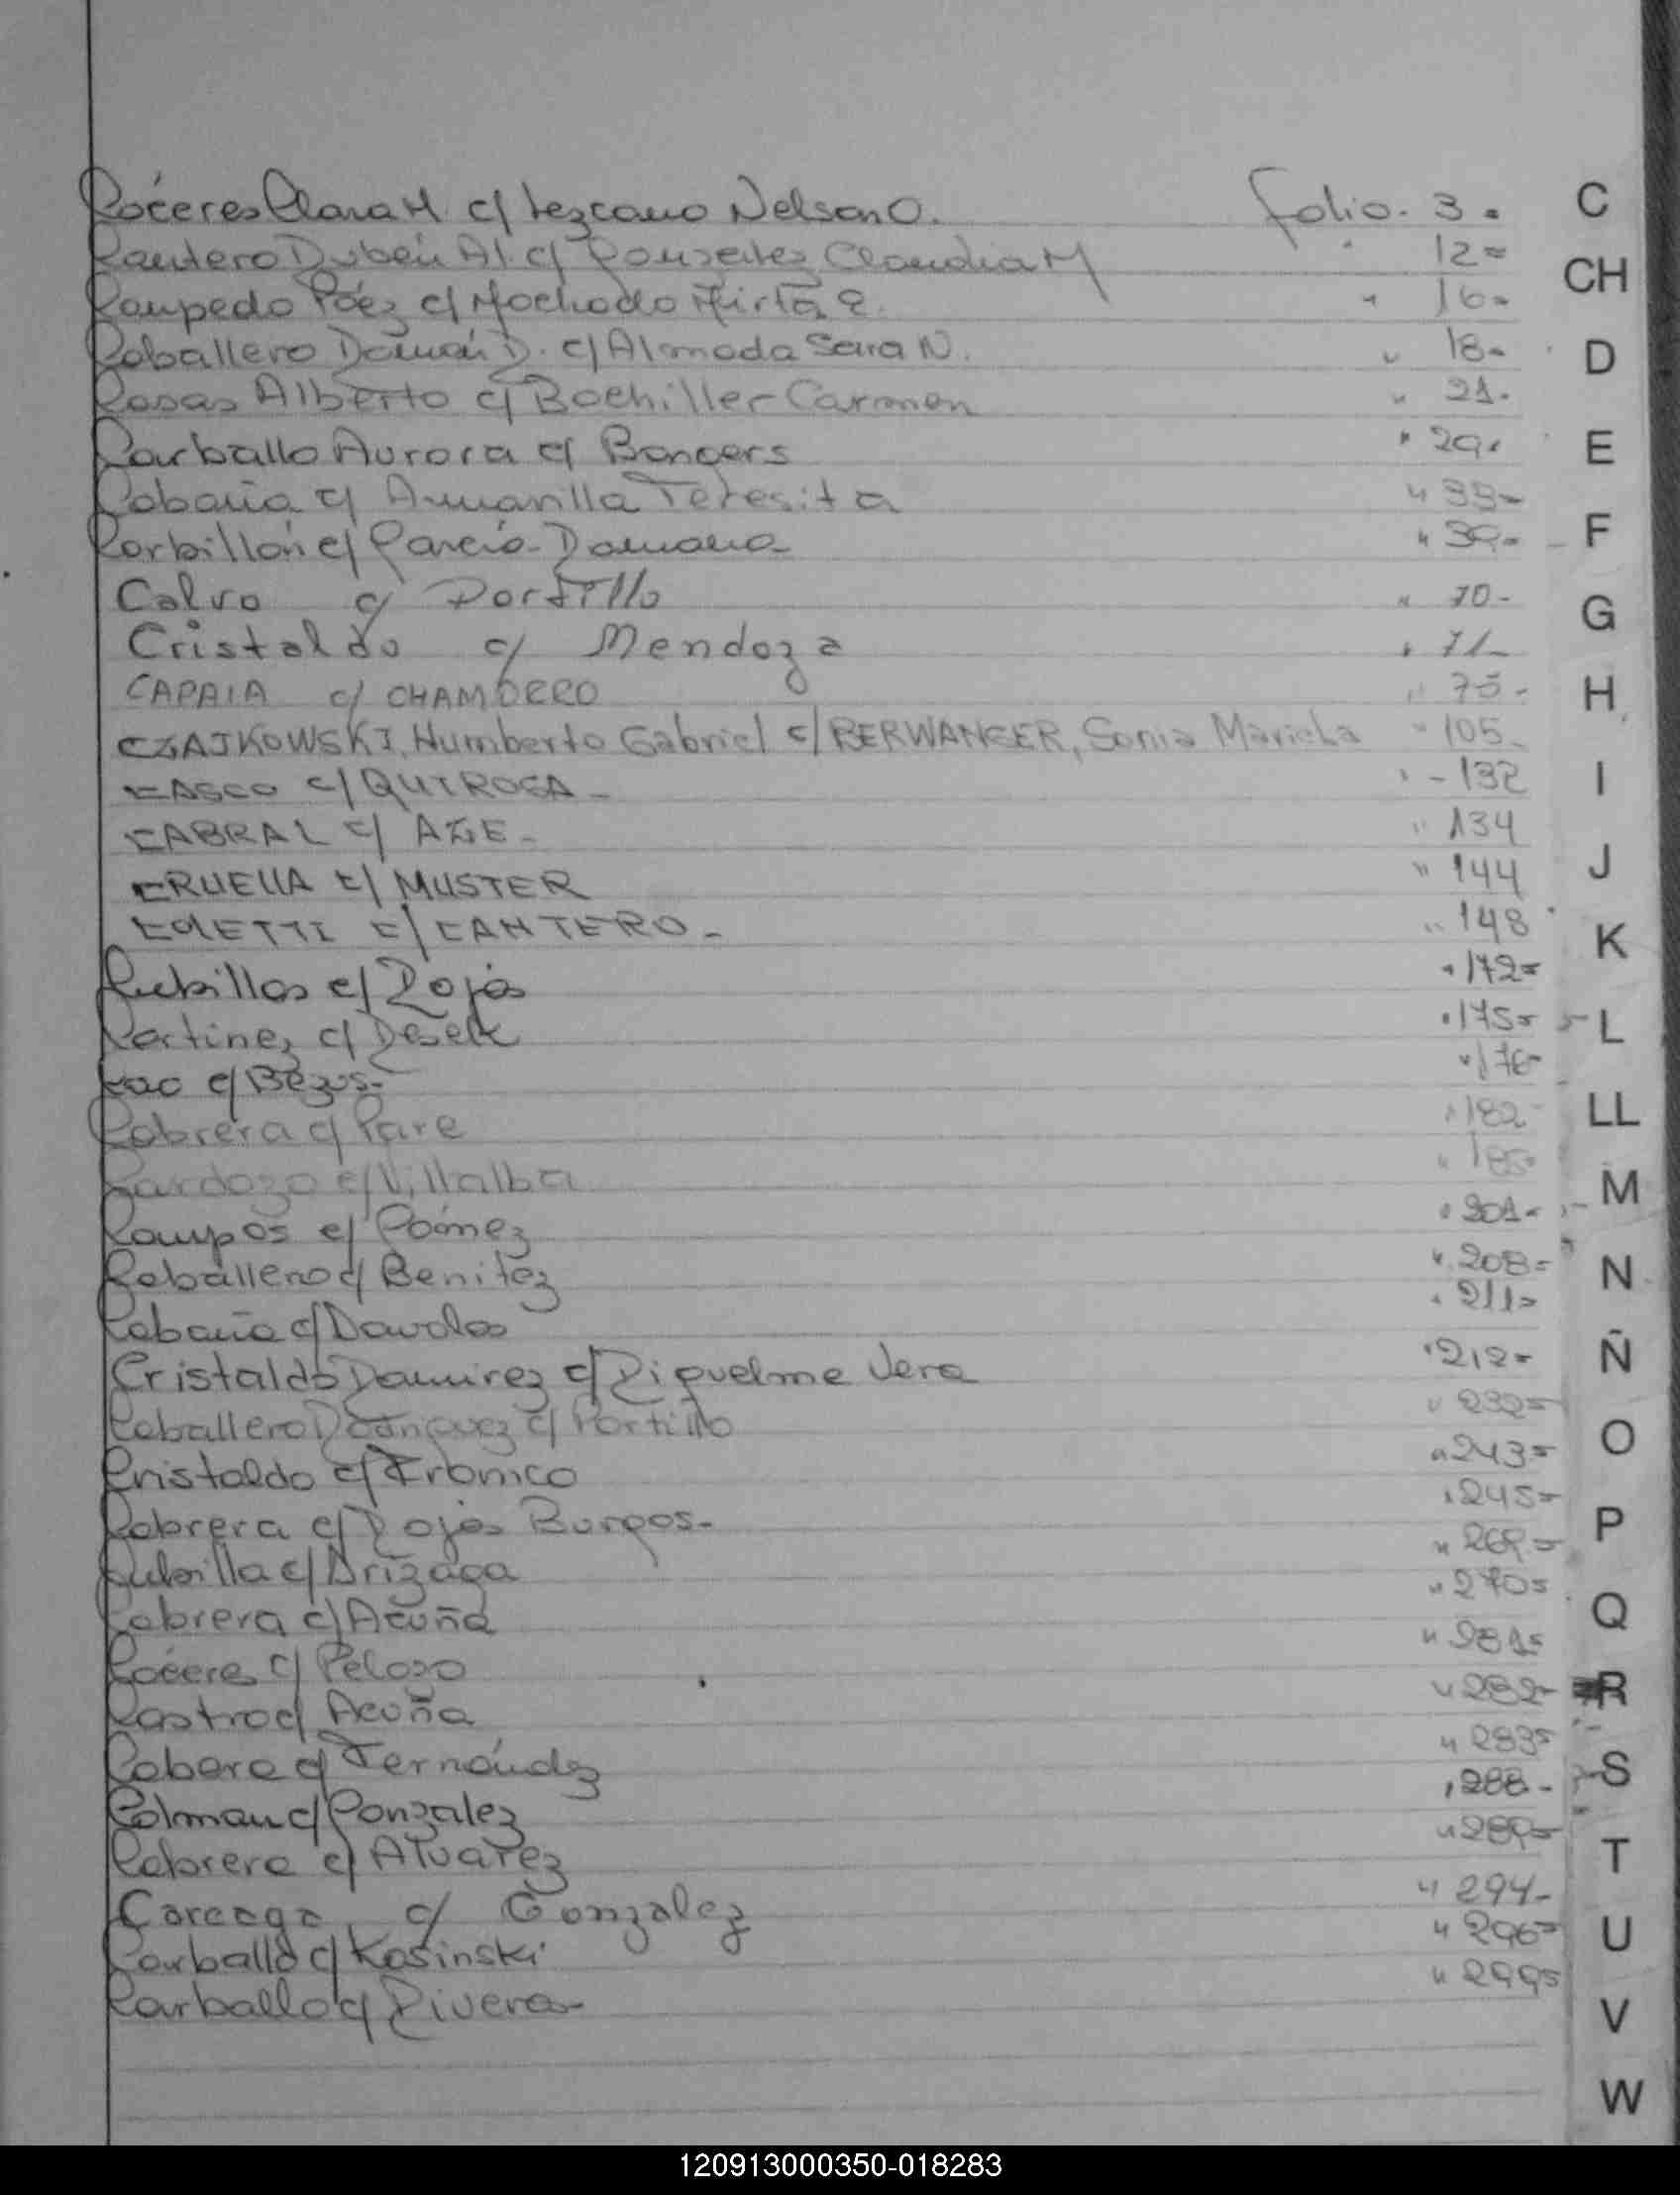 Cáceres Clara M. c/ Lezcano Nelson O. Folio. 3.
C
Cantero Rubén Al. c/ Gonzalez Claudia M " 12=
CH
Campedo Páez c/ Machado Mirta E. " 16-
Caballero Román D. c/ Almada Sara N. " 18-
D
Casas Alberto c/ Bachiller Carmen " 21.
Carballo Aurora c/ Bongers " 29.
E
Cabaña c/ Amarilla Teresita
Corbillón c/ García Damaria
F
Calvo c/ Portillo " 70-
G
Cristaldo c/ Mendoza " 71-
CAPAIA c/ CHAMORRO " 75-
H
CZAJKOWSKI, Humberto Gabriel c/ BERWANGER, Sonia Mariela " 105-
CASCO c/ QUIROGA - " - 132
I
CABRAL c/ " 134
CRUELLA c/ MUSTER " 144
J
COLETTI c/ CANTERO - " 148
K
Cubillas c/ Rojas " 172=
Cartinez c/ Resek " 175=
L
c/ Bezus- " 176-
Cabrera c/ Pare " 182-
LL
Cardozo c/ Villalba
M
Campos c/ Gómez " 201-
Caballero c/ Benitez " 208=
N
Cabaña c/ Davalos " 211=
Cristaldo Ramirez c/ Riquelme Vera " 212=
Ñ
Caballero Rodriguez c/ Portillo " 232=
O
Cristaldo c/ Franco " 243=
Cabrera c/ Rojas Burgos- " 245=
P
Cubilla c/ Arizaga " 269=
Cabrera c/ Acuña " 270=
Q
Cácere c/ Peloso " 281=
Castro c/ Acuña " 282-
R
Cabera c/ Fernández " 283=
S
Colman c/ Gonzalez " 288-
Cabrera c/ Alvarez " 289=
T
Careaga c/ Gonzalez " 294-
Carballo c/ Kosinski " 296=
U
Carballo c/ Rivera- " 299=
V
W
120913000350-018283